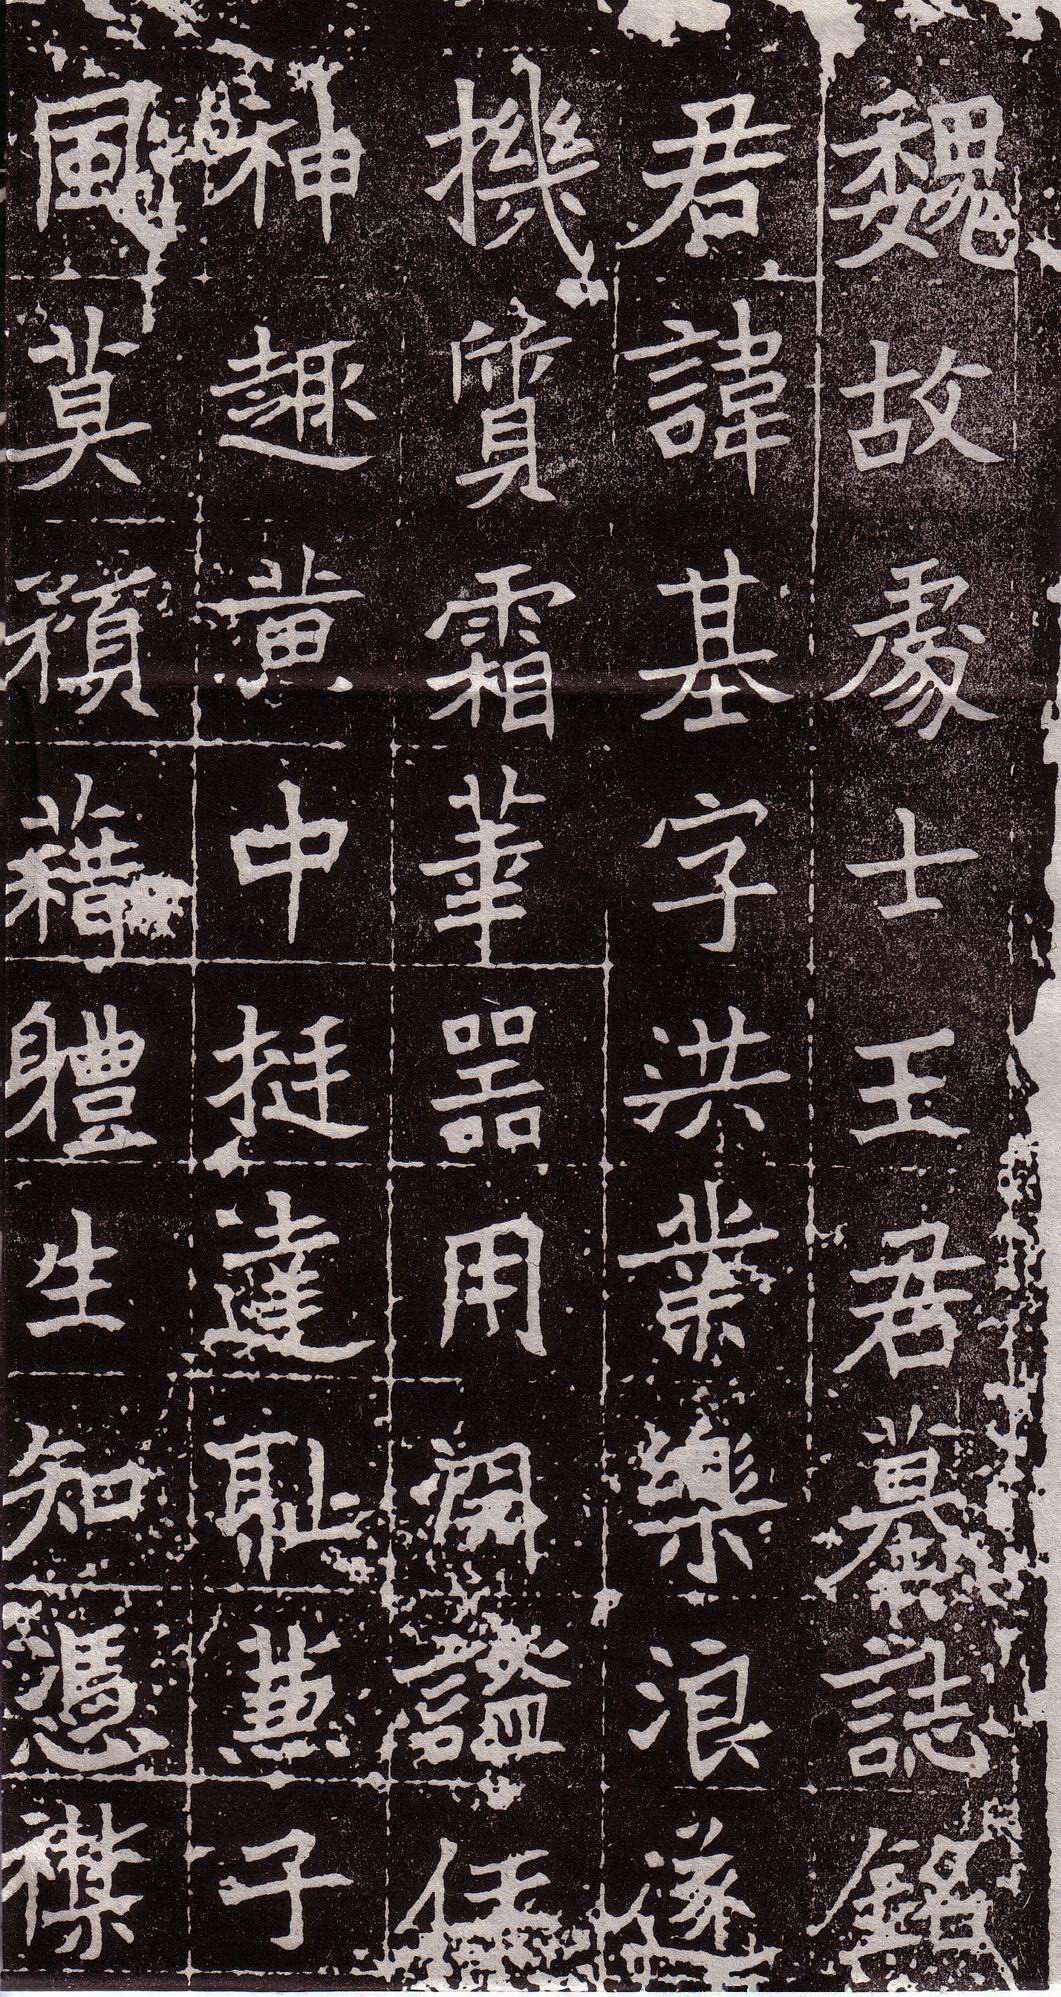 魏故處士王君墓誌銘
君諱基字洪業樂浪遂
機質霜華器用閑謐任
神趣黃中挺達耻燕子
風莫藉體生知憑襟